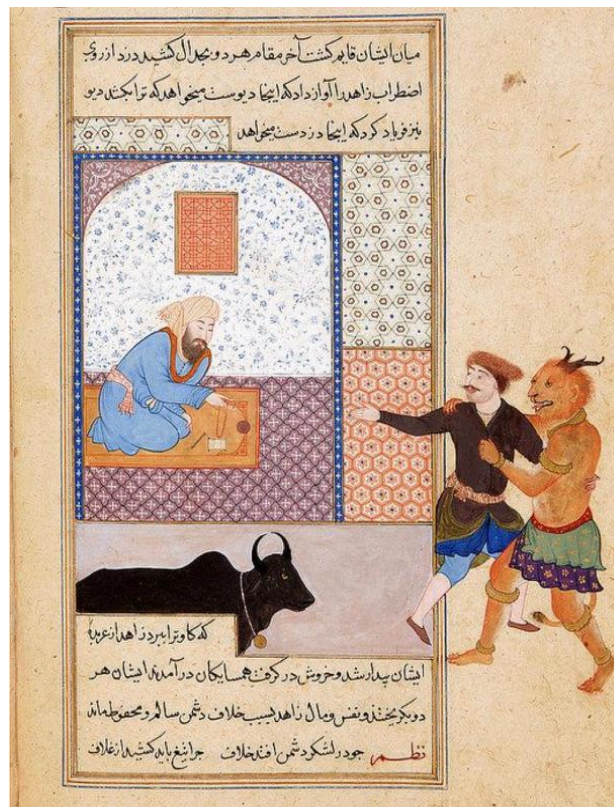 میان ایشان قایم کشت آخر مقام هر دو بجدال کشید دزد از روی
اضطراب زاهد را آواز داد که اینجا دیوست میخواهد که ترا بکشد دیو
نیز فریاد کرد که اینجا دزدست میخواهد
که کاو ترا ببرد زاهد از عربدۀ
ایشان بیدار شد و خروش در کرفت همسایکان در آمدند ایشان هر
دو بکریختند و نفس و مال زاهد بسبب خلاف دشمن سالم و محفوظ ماند
نظم چو در لشکر دشمن افتد خلاف چرا تیغ باید کشید از غلاف